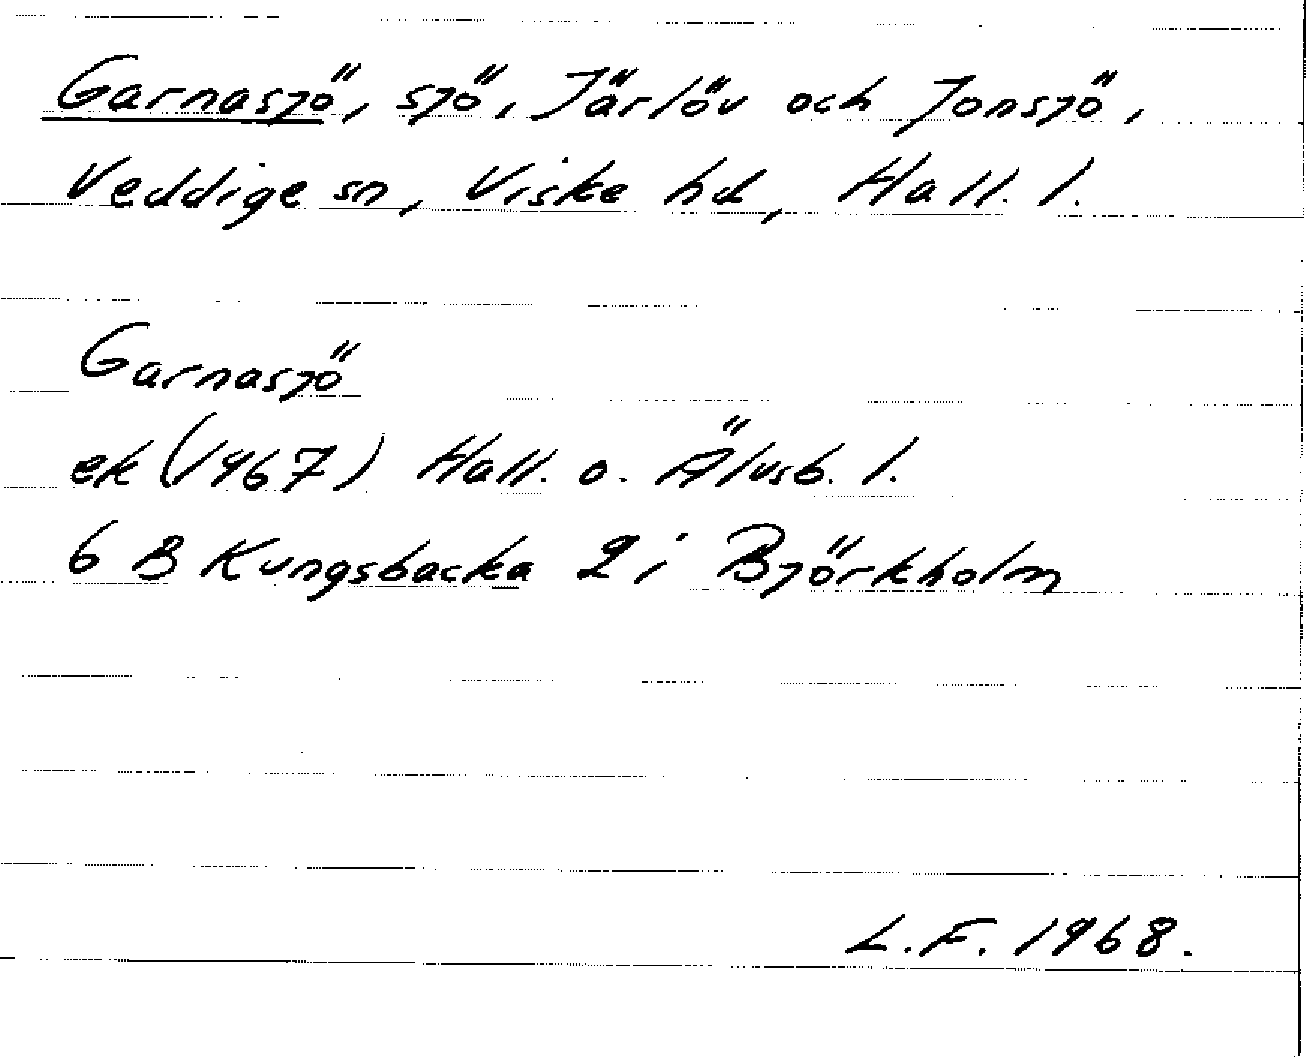 Garnasjö, sjö, Järlöv och Jonsjö,
Veddige sn, Viske hd, Hall. l.
Garnasjö
ek (1967) Hall. o. Älvsb. l.
6 B Kungsbacka 2 i Björkholm
L.F. 1968.